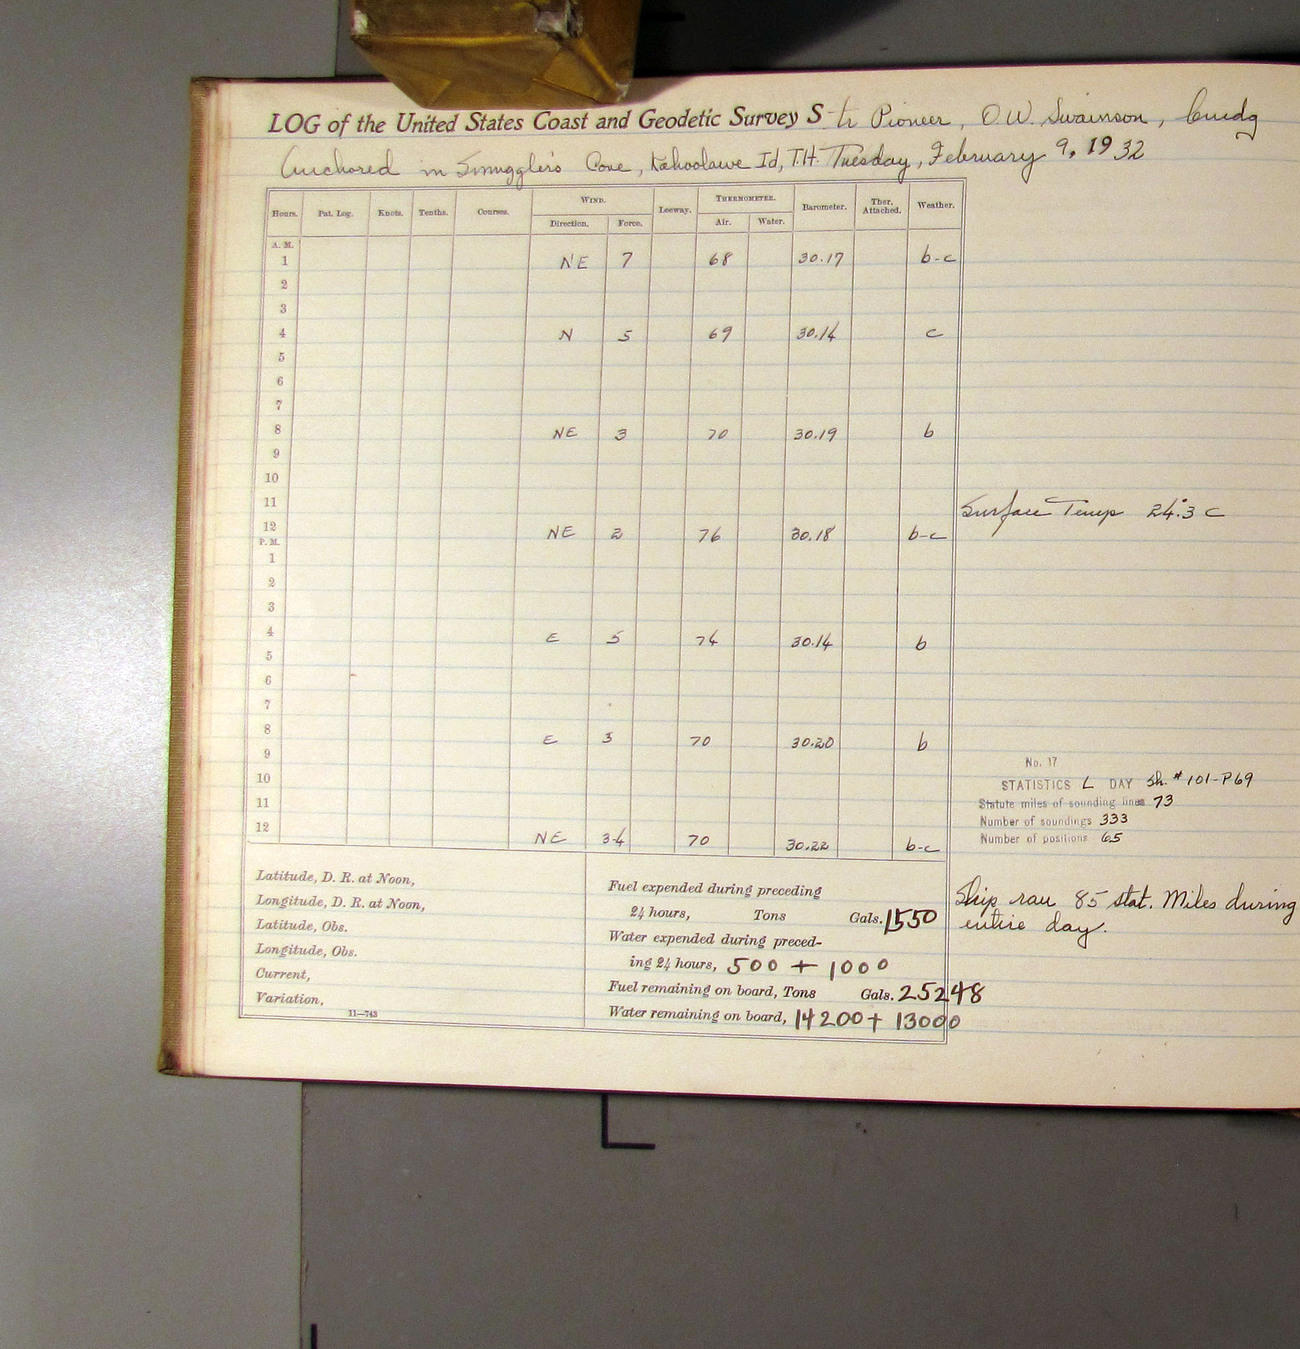 LOG of the United States Coast and Geodetic Survey Str Pioneer, O.W. Swainson, Cmdg
Anchored in Smuggler's Cove, Kahoolawe Id, T.H. Tuesday, February 9, 1932
Hours. Pat. Log. Knots. Tenths. Courses. WIND. Leeway. THERMOMETER. Barometer. Ther. Attached. Weather.
Direction. Force. Air. Water.
A. M.
1 NE 7 68 30.17 b-c
2
3
4 N 5 69 30.14 c
5
6
7
8 NE 3 70 30.19 b
9
10
11
Surface Temp 24°.3 C
12 NE 2 76 30.18 b-c
P. M.
1
2
3
4 E 5 74 30.14 b
5
6
7
8 E 3 70 30.20 b
9
10
11
12 NE 3-4 70 30.22 b-c
No. 17
STATISTICS L DAY Sh. #101-P69
Statute miles of sounding lines 73
Number of soundings 333
Number of positions 65
Ship ran 85 stat. Miles during
entire day.
Latitude, D. R. at Noon,
Longitude, D. R. at Noon,
Latitude, Obs.
Longitude, Obs.
Current,
Variation,
11—743
Fuel expended during preceding
24 hours, Tons Gals. 1550
Water expended during preced-
ing 24 hours, 500 + 1000
Fuel remaining on board, Tons Gals. 25248
Water remaining on board, 14200 + 13000